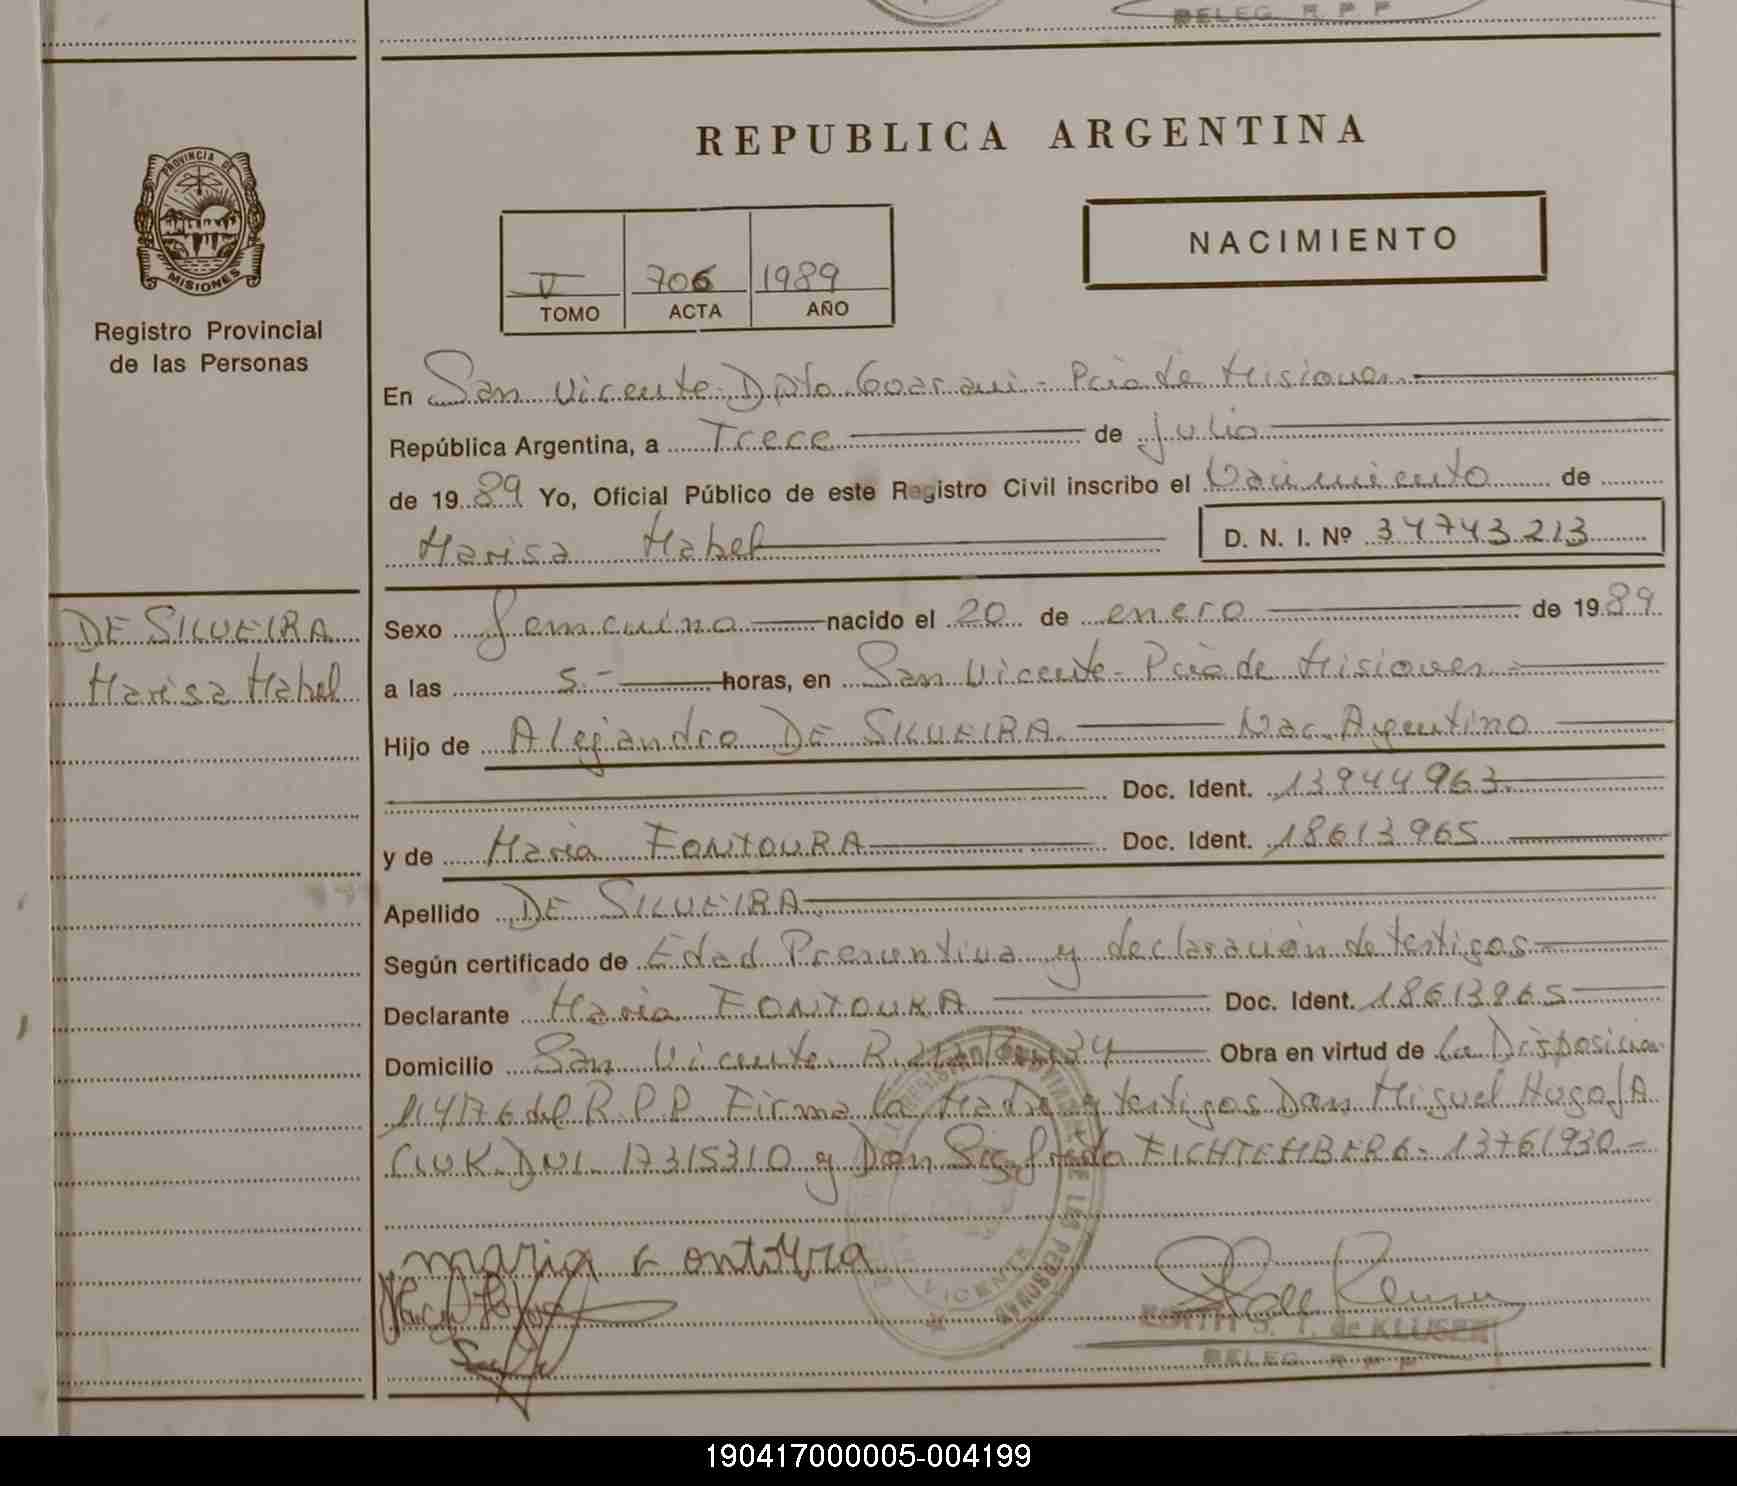 DELEG R P P
REPUBLICA ARGENTINA
PROVINCIA DE
MISIONES
Registro Provincial
de las Personas
NACIMIENTO
V 706 1989
TOMO ACTA AÑO
En San Vicente Dpto Guarani - Pcia de Misiones
República Argentina, a Trece de julio
de 1989 Yo, Oficial Público de este Registro Civil inscribo el Nacimiento de
Marisa Mabel D. N. I. Nº 34743213
DE SILVEIRA
Marisa Mabel
Sexo femenino nacido el 20 de enero de 1989
a las 5.- horas, en San Vicente - Pcia de Misiones
Hijo de Alejandro DE SILVEIRA Nac. Argentino
Doc. Ident. 13944963
y de Maria FONTOURA Doc. Ident. 18613965
Apellido DE SILVEIRA
Según certificado de Edad Presuntiva y declaración de testigos
Declarante Maria FONTOURA Doc. Ident. 18613965
Domicilio San Vicente Obra en virtud de la Disposicion
del R.P.P. Firma la Madre y testigos Don Miguel Hugo
DNI. 17315310 y Don Sigfredo FICHTEMBERG - 13761930 =
maria Fontoura
VICENTE
DE LAS PERSONAS
EDITH S. T. de KLUSEN
DELEG. R P P
190417000005-004199